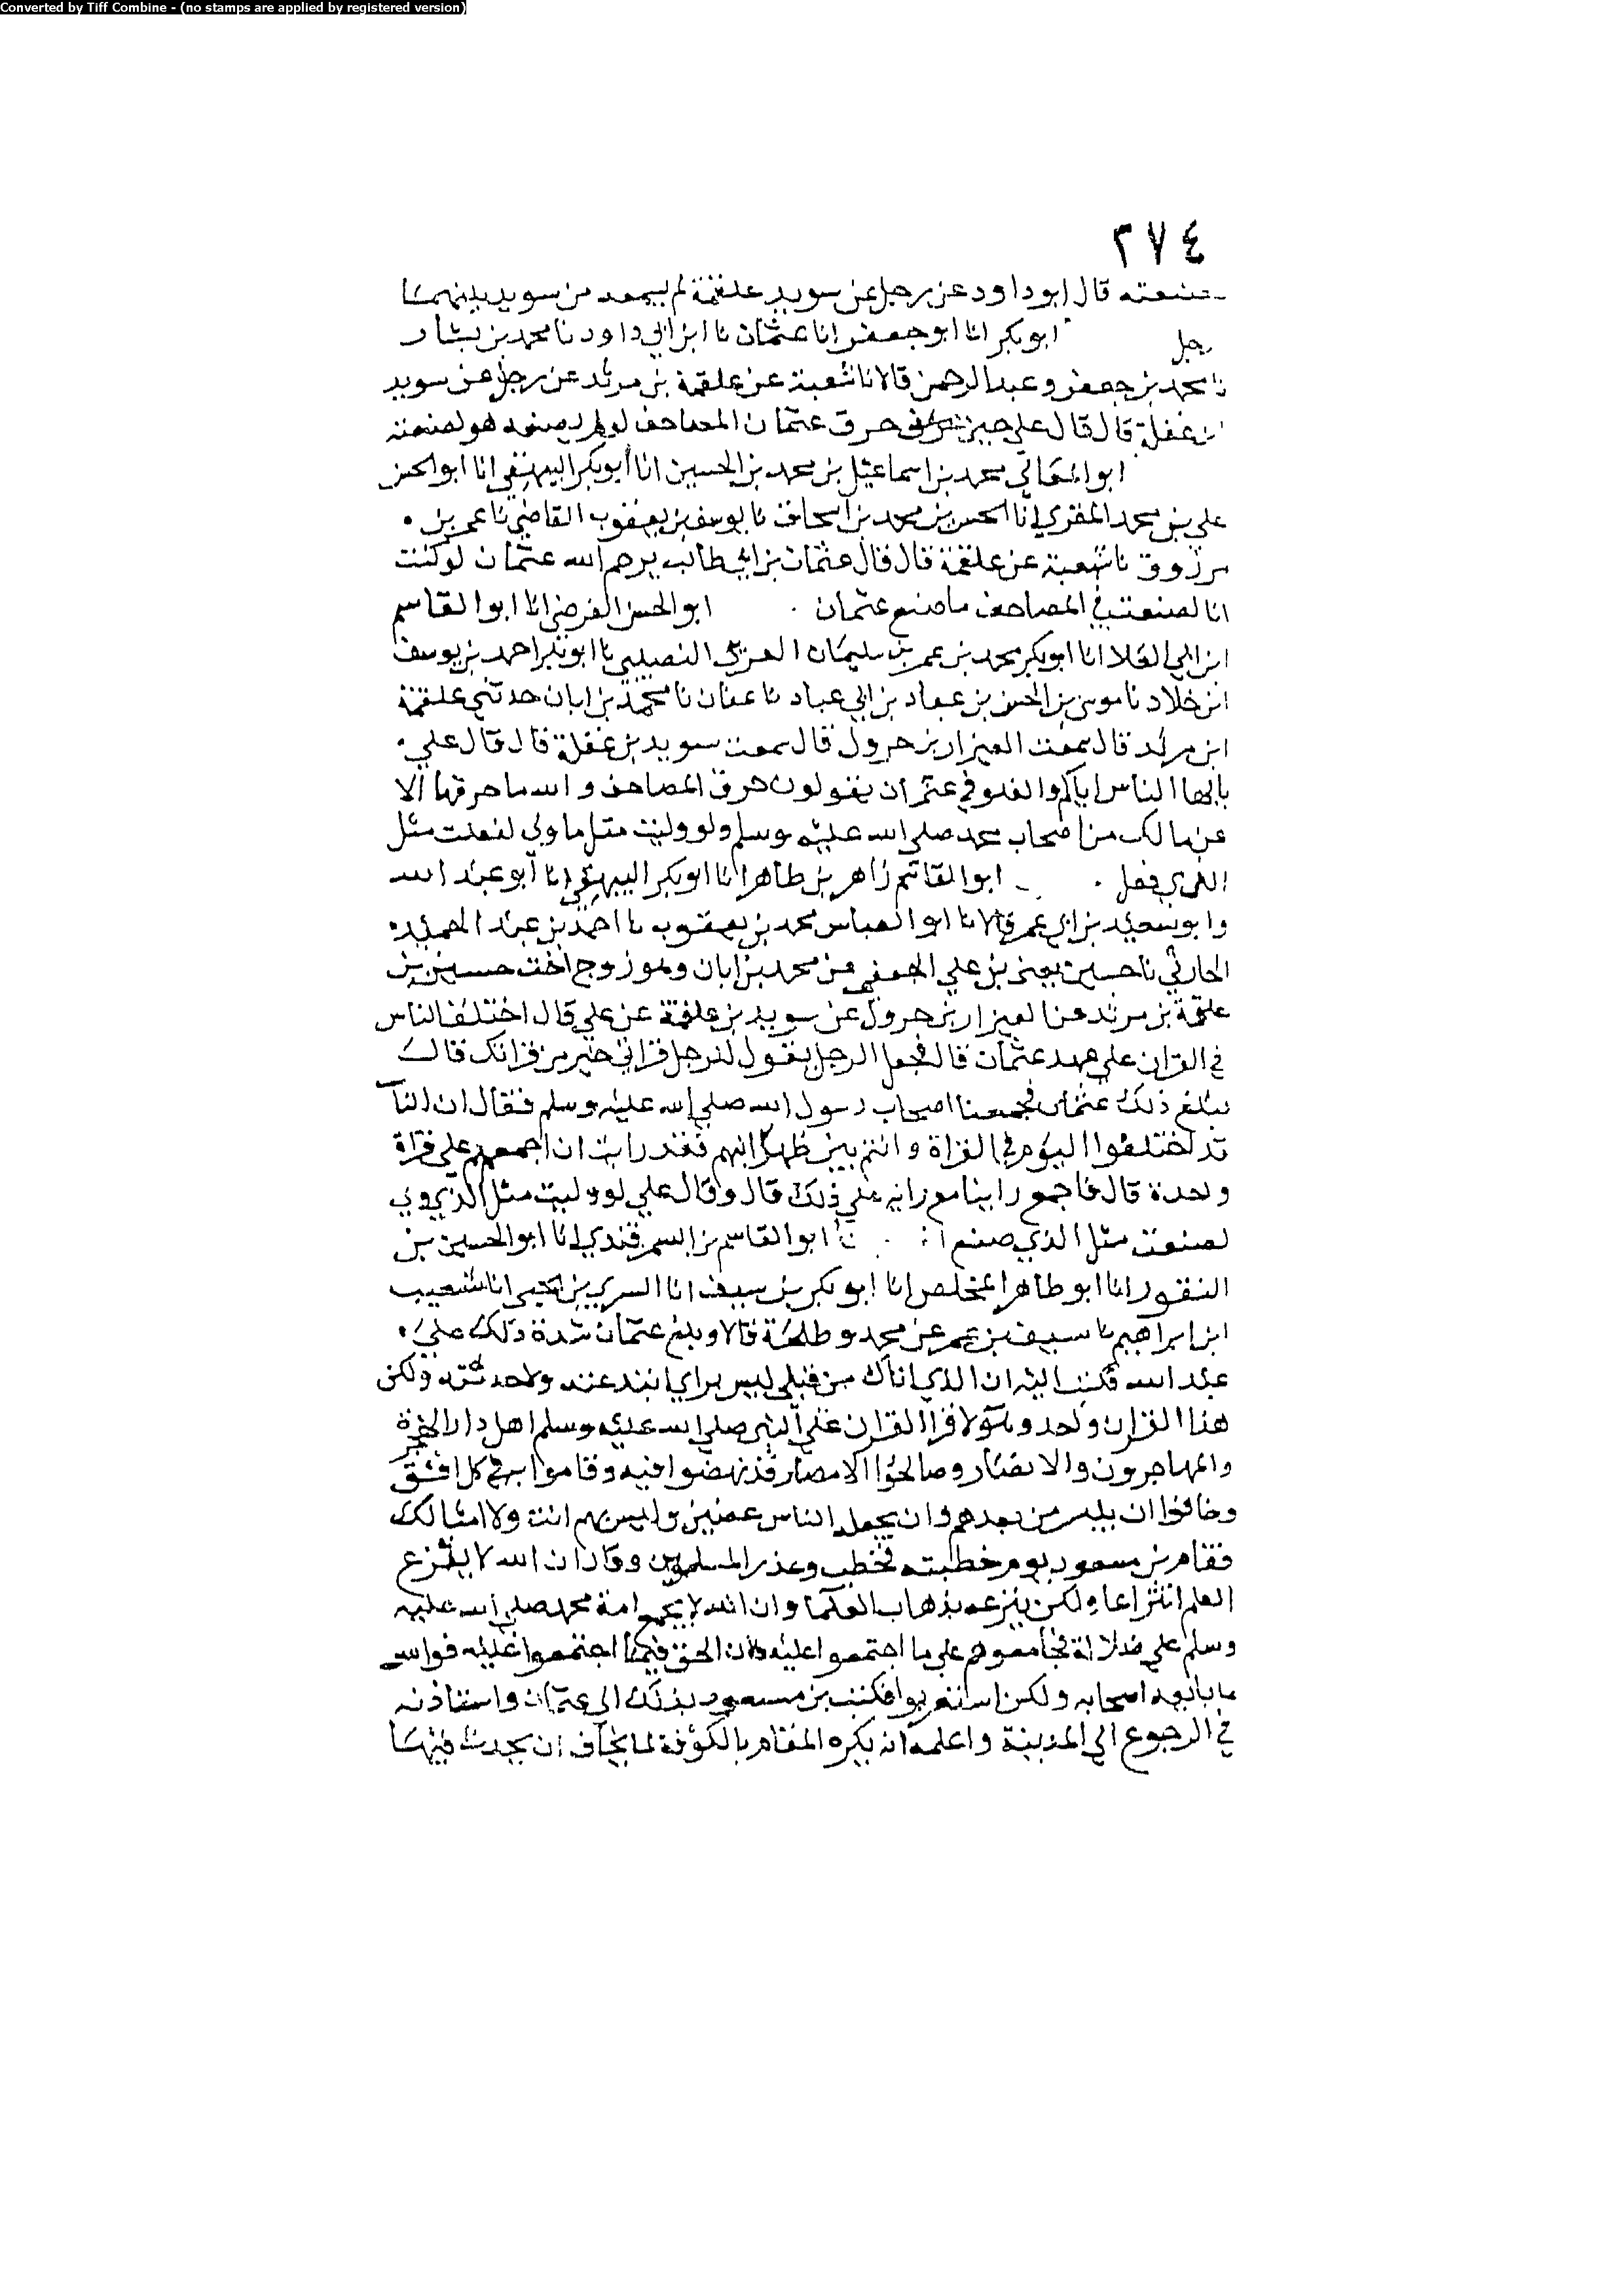 Converted by Tiff Combine - (no stamps are applied by registered version)
٢٧٤
صنعته قال ابو داود عن رجل عن سويد علقمة لم يسمعه من سويد بينهما
رجل ابو بكر انا ابو جعفر انا عثمان نا ابن ابي داود نا محمد بن بشار
نا محمد بن جعفر وعبد الرحمن قالا نا شعبة عن علقمة بن مرثد عن رجل عن سويد
ابن غفلة قال قال علي حين حرق عثمان المصاحف لو لم يصنعه هو لصنعته
ابو المعالي محمد بن اسماعيل بن محمد بن الحسين انا أبو بكر البيهقي انا ابو الحسن
علي بن محمد المقري انا الحسن بن محمد بن اسحاق نا يوسف بن يعقوب القاضي نا عمر بن
مرزوق نا شعبة عن علقمة قال قال عثمان بن ابي طالب يرحم الله عثمان لو كنت
انا لصنعت في المصاحف ما صنع عثمان ابو الحسن الفرضي انا ابو القاسم
ابن ابي العلا انا ابو بكر محمد بن عمر بن سليمان النصيبي نا ابو بكر احمد بن يوسف
ابن خلاد نا موسى بن الحسن بن عباد بن ابي عباد نا عفان نا محمد بن ابان حدثني علقمة
ابن مرثد قال سمعت العيزار بن جرول قال سمعت سويد بن غفلة قال قال علي
يا ايها الناس اياكم والغلو في عثمان يقولون حرق المصاحف والله ما حرقها الا
عن مالك من اصحاب محمد صلى الله عليه وسلم ولو وليت مثل ما ولي لفعلت مثل
الذي فعل ابو القاسم زاهر بن طاهر انا ابو بكر البيهقي انا أبو عبد الله
وابو سعيد بن ابي عمر قالا نا ابو العباس محمد بن يعقوب نا احمد بن عبد الحميد
الحارثي نا حسين يعني بن علي الجعفي عن محمد بن ابان وهو زوج اخت حسين بن
علقمة بن مرثد عن العيزار بن جرول عن سويد بن علقمة عن علي قال اختلف الناس
في القران على عهد عثمان قال فجعل الرجل يقول للرجل قراتي خير من قراتك قال
فبلغ ذلك عثمان فجمعنا اصحاب رسول الله صلى الله عليه وسلم فقال ان الناس
قد اختلفوا اليوم في القراة وانتم بين ظهرانيهم فقد رايت ان اجمعهم على قراة
واحدة قال فاجمع راينا مع رايه على ذلك قال وقال علي لو وليت مثل الذي ولي
لصنعت مثل الذي صنع ابو القاسم بن السمرقندي انا ابو الحسين بن
النقور انا ابو طاهر المخلص انا ابو بكر بن سيف انا السري بن يحيى انا شعيب
ابن ابراهيم نا سيف بن عمر عن محمد وطلحة قالا وبلغ عثمان شدة ذلك على
عبد الله فكتب اليه ان الذي اتاك من قبلي ليس براي ابتدعته ولا حدث ولكن
هذا القران واحد وهولا قراا القران على النبي صلى الله عليه وسلم اهل دار الهجرة
والمهاجرون والانصار وصالحوا الامصار قد نهضوا فيه وقاموا به في كل افق
وخافوا ان يلبس من بعدهم وان يجعله الناس عضين وليس بهم انت ولا امثالك
فقام بن مسعود يوم خطبته فخطب وعذر المسلمين وقال ان الله لا ينتزع
العلم انتزاعا ولكن ينزعه بذهاب العلما وان الله لا يجمع امة محمد صلى الله عليه
وسلم على ضلالة فجامعوهم على ما اجتمعوا عليه فان الحق فيما اجتمعوا عليه فوالله
ما اصحابه ولكن فكتب بن مسعود بذلك الى عثمان واستاذنه
في الرجوع الى المدينة واعلمه انه يكره المقام بالكوفة لما يخاف ان يحدث فيها